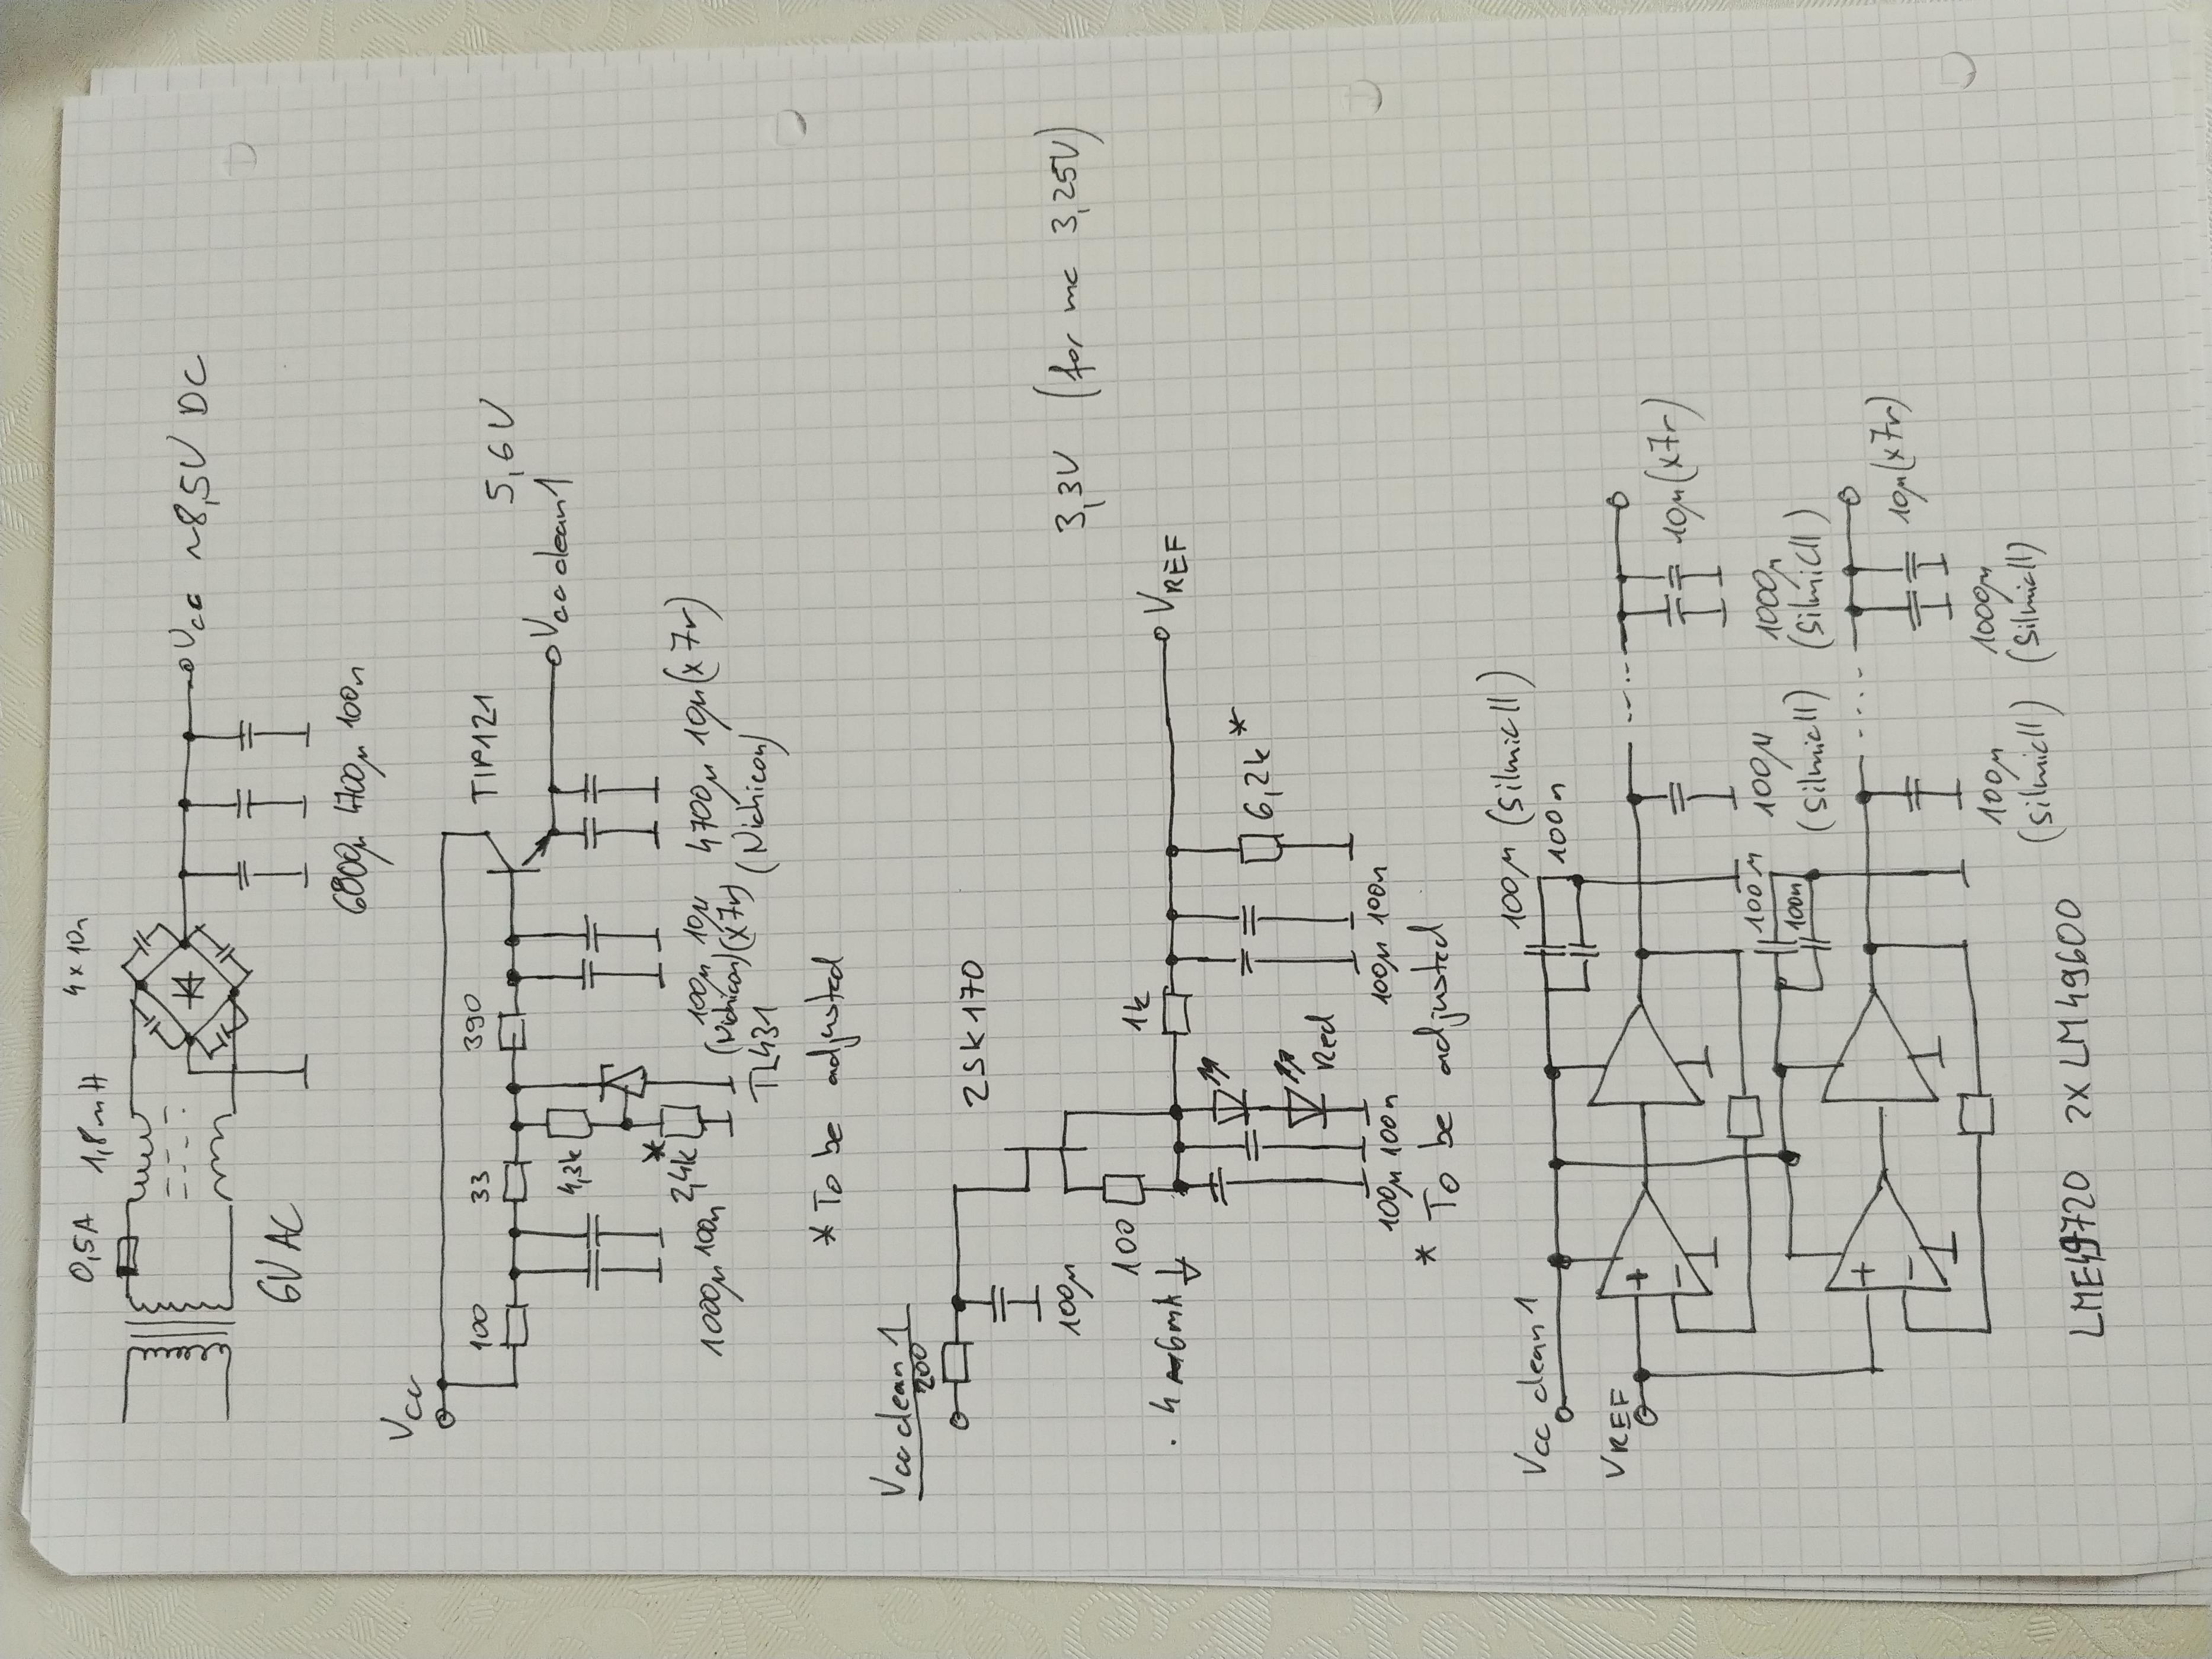 0,5A 1,8mH 4x10n
6V AC
Vcc ~8,5V DC
6800µ 4700µ 100n
Vcc
100
33
390
TIP121
5,6V
Vcc clean1
4,3k
*
2,4k
1000µ 100n
TL431
100µ 10µ
(Nichicon)(x7r)
4700µ 10µ(x7r)
(Nichicon)
* To be adjusted
Vcc clean1
200
100µ
2SK170
100
4-6mA
100µ 100n
Red
1k
100µ 100n
6,2k *
VREF
3,3V (for me 3,25V)
* To be adjusted
Vcc clean1
VREF
+
-
100µ (Silmic II)
100n
100µ
(Silmic II)
1000µ
(Silmic II)
10µ(x7r)
+
-
100µ
100n
100µ
(Silmic II)
1000µ
(Silmic II)
10µ(x7r)
LME49720 2X LM49600